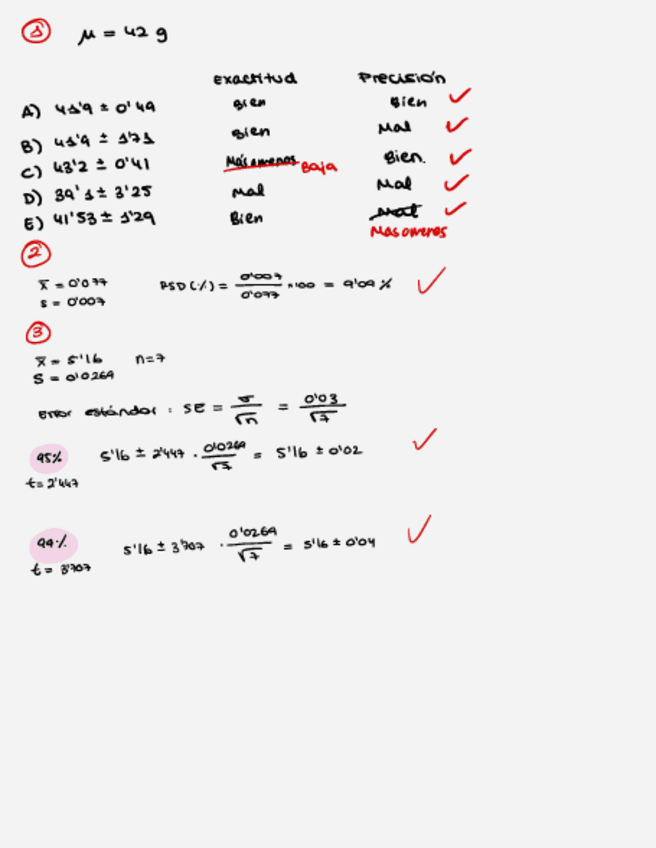 1 μ = 42 g
Exactitud Precisión
A) 41'9 ± 0'49 Bien Bien ✓
B) 41'9 ± 1'71 Bien Mal ✓
C) 43'2 ± 0'41 Más o menos Baja Bien. ✓
D) 39'1 ± 3'25 Mal Mal ✓
E) 41'53 ± 1'29 Bien Mal ✓
Mas o menos
2
x̄ = 0'077 RSD (%) = 0'007 / 0'077 × 100 = 9'09 % ✓
s = 0'007
3
x̄ = 5'16 n=7
S = 0'0269
Error estándar : SE = σ / √n = 0'03 / √7
95% 5'16 ± 2'447 · 0'0269 / √7 = 5'16 ± 0'02 ✓
t = 2'447
99% 5'16 ± 3'707 · 0'0269 / √7 = 5'16 ± 0'04 ✓
t = 3'707